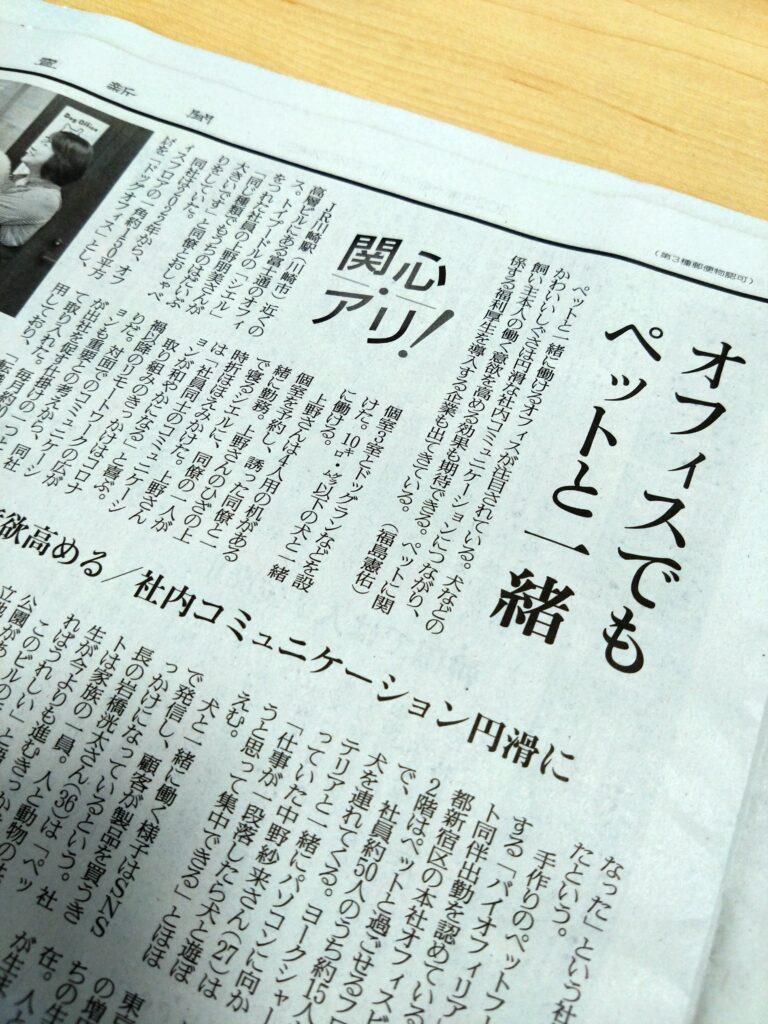 新聞
(第3種郵便物認可)
オフィスでも
ペットと一緒
ペットと一緒に働けるオフィスが注目されている。犬などの
かわいいしぐさは円滑な社内コミュニケーションにつながり、
飼い主本人の働く意欲を高める効果も期待できる。ペットに関
係する福利厚生を導入する企業も出てきている。 (福島憲佑)
関心・
アリ!
欲高める/社内コミュニケーション円滑に
Dog Office
JR川崎駅(川崎市)近くの
高層ビルにある富士通のオフィ
ス。トイプードルの「シエル」
をつれた社員の上野朋美さんが
「同じ種類でもうちのはだいぶ
大きいです」と同僚とおしゃべ
りをしていた。
同社は2022年から、オフ
ィスフロアの一角約150平方
㍍を「ドッグオフィス」とし、
個室3室やドッグランなどを設
けた。10㌔・㌘以下の犬と一緒
に働ける。
上野さんは4人用の机がある
個室を予約し、誘った同僚と一
緒に勤務。上野さんのひざの上
で寝るシエルに、同僚の一人が
時折ほほえみかけた。上野さん
は「社員同士のコミュニケーシ
ョンが和やかになる」と喜ぶ。
取り組みのきっかけはコロナ
禍以降のリモートワークの広が
りだ。対面でのコミュニケーシ
ョンも重要との考えから、同社
が出社を促す仕掛けの一つと
なった」という社
たという。
手作りのペットフー
する「バイオフィリア
ト同伴出勤を認めている
都新宿区の本社オフィスビ
2階はペットと過ごせるフロ
で、社員約50人のうち約15人
犬を連れてくる。ヨークシャー
テリアと一緒にパソコンに向か
っていた中野紗来さん(27)は
「仕事が一段落したら犬と遊ぼ
うと思って集中できる」とほほ
えむ。
犬と一緒に働く様子はSNS
で発信し、顧客が製品を買うき
っかけになっているという。社
長の岩橋洸太さん(36)は「ペッ
トは家族の一員。人と動物の
生が今よりも進むきっか
ればうれしい」と
このビルの
公園があ